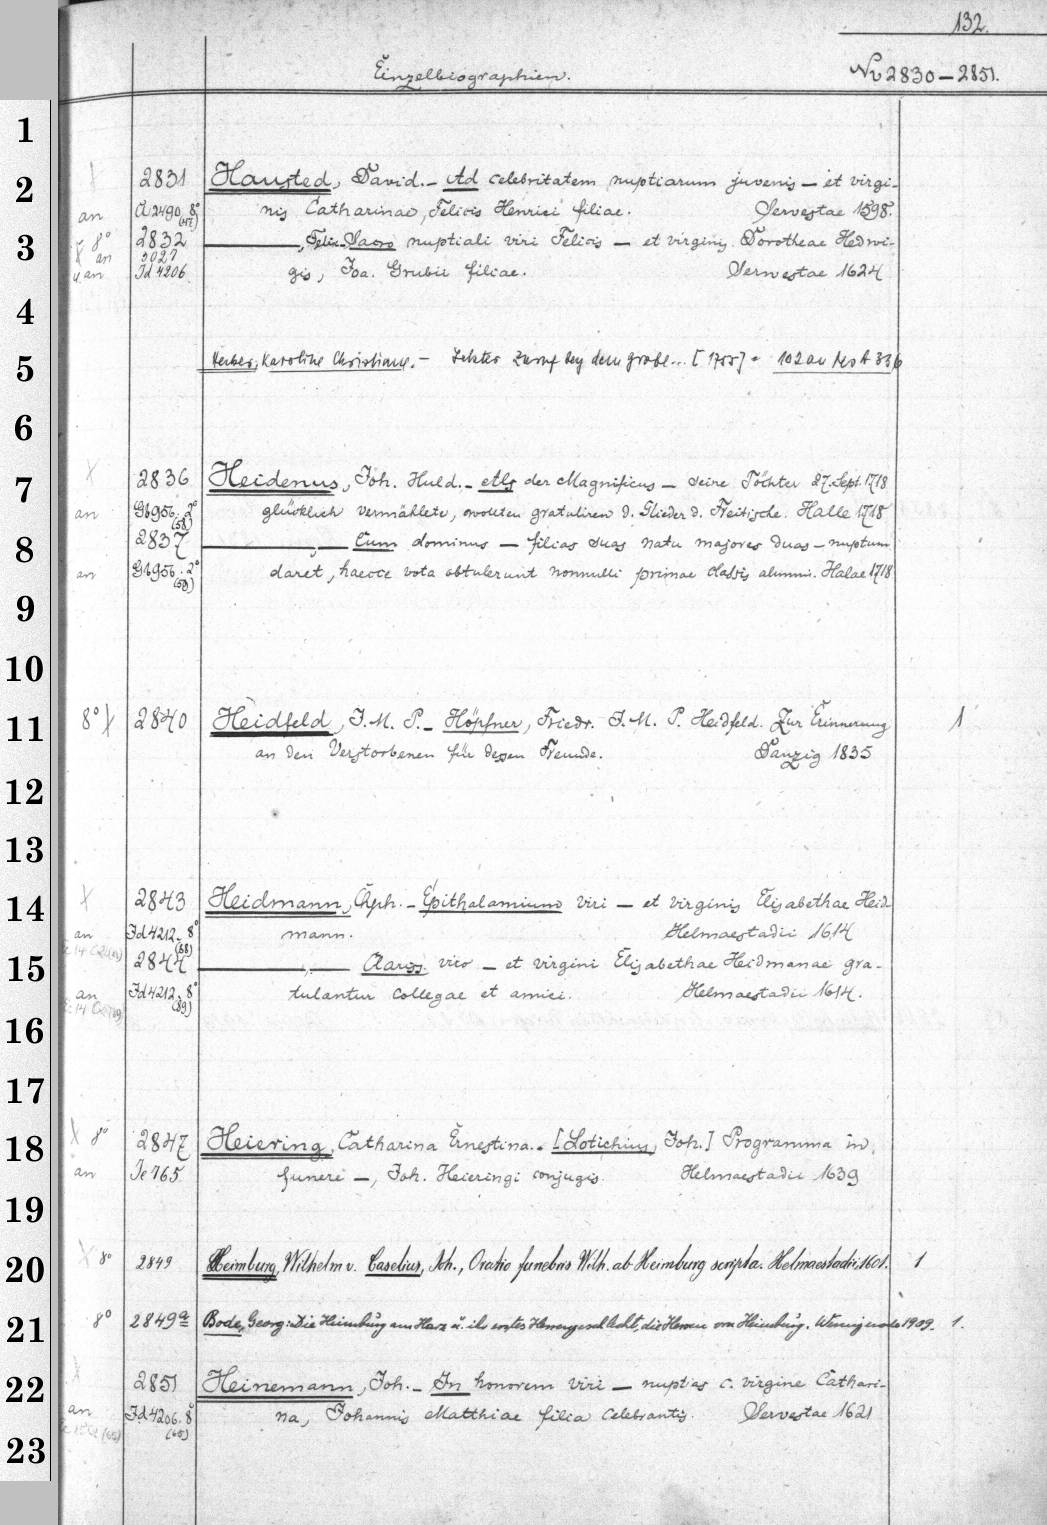 132.
Einzelbiographien. Nr 2830–2851.
1
2 2831 Hausted, David. – Ad celebritatem nuptiarum juvenis – et virgi-
an nis Catharinae, Felicis Henrici filiae. Servestae 1598.
3 8° 2832 nuptiali viri Felicis – et virginis Dorotheae Hedwi-
an Id 4206 gis, Joa. Grubii filiae. Servestae 1624
4
5 Karoline Christiane. – Letzter Zuruf bey dem Grabe... [1755]
6
7 2836 Heidenus, Joh. Huld. – Als der Magnificus – seine Töchter 27. Sept. 1718
an Gb956. 2° (58) glücklich vermählete, wollten gratuliren d. Glieder d. Freitische. Halle 1718
8 2837 –, – Cum dominus – filias suas natu majores duas – nuptum
an Gb956. 2° (59) daret, haecce vota obtulerunt nonnulli primae classis alumni. Halae 1718
9
10
11 8° X 2840 Heidfeld, J. M. P. – Höpfner, Friedr. J. M. P. Heidfeld. Zur Erinnerung 1
an den Verstorbenen für dessen Freunde. Danzig 1835
12
13
14 2843 Heidmann, Chph. – Epithalamium viri – et virginis Elisabethae Heid
an Id 4212. 8° (88) mann. Helmaestadii 1614
15 2844 –, – Clariss. viro – et virgini Elisabethae Heidmanae gra-
an Id 4212. 8° (89) tulantur collegae et amici. Helmaestadii 1614.
16
17
18 X 8° 2847 Heiering, Catharina Ernestina. – [Lotichius, Joh.] Programma in
an Je 765 funere –, Joh. Heieringi conjugis. Helmaestadii 1639
19
20 X 8° 2849 Heimburg, Wilhelm v. Caselius, Joh., Oratio funebris Wilh. ab Heimburg scripta. Helmaestadii, 1601. 1
21 8° 2849a Bode, Georg: Die Heimburg am Harz u. ihr erstes Herrengeschlecht, die Herren von Heimburg. Wernigerode 1909. 1.
22 2851 Heinemann, Joh. – In honorem viri – nuptias c. virgine Cathari-
an Id 4206. 8° na, Johannis Matthiae filia celebrantis. Servestae 1621
23